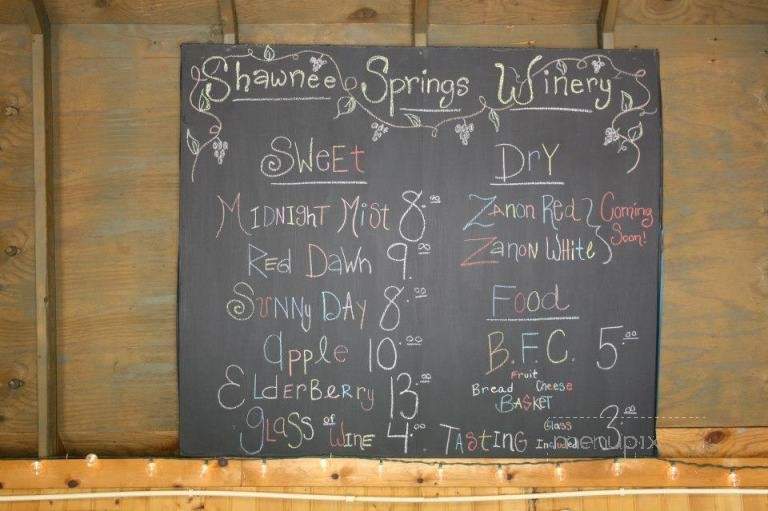 Shawnee Springs Winery
SWeEt
MIDNIGHT MIST 8.00
Red Dawn 9.00
Sunny DAY 8.00
apple 10.00
ELderBerry 13.00
glass of Wine 4.00
DrY
Zanon Red } Coming
Zanon White } Soon!
Food
B.F.C. 5.00
Fruit
Bread Cheese
BASKET
TASTING Glass Included 3.00
menupix